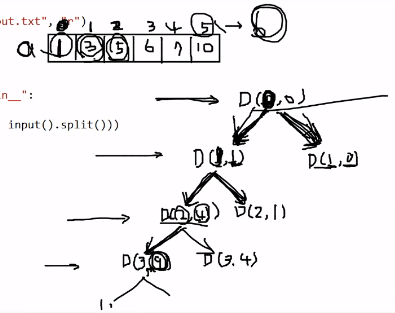 out.txt", "r")
0 1 2 3 4 5
a 1 3 5 6 7 10
n__":
D(0,0)
input().split()))
D(1,1) D(1,0)
D(2,4) D(2,1)
D(3,9) D(3,4)
1,